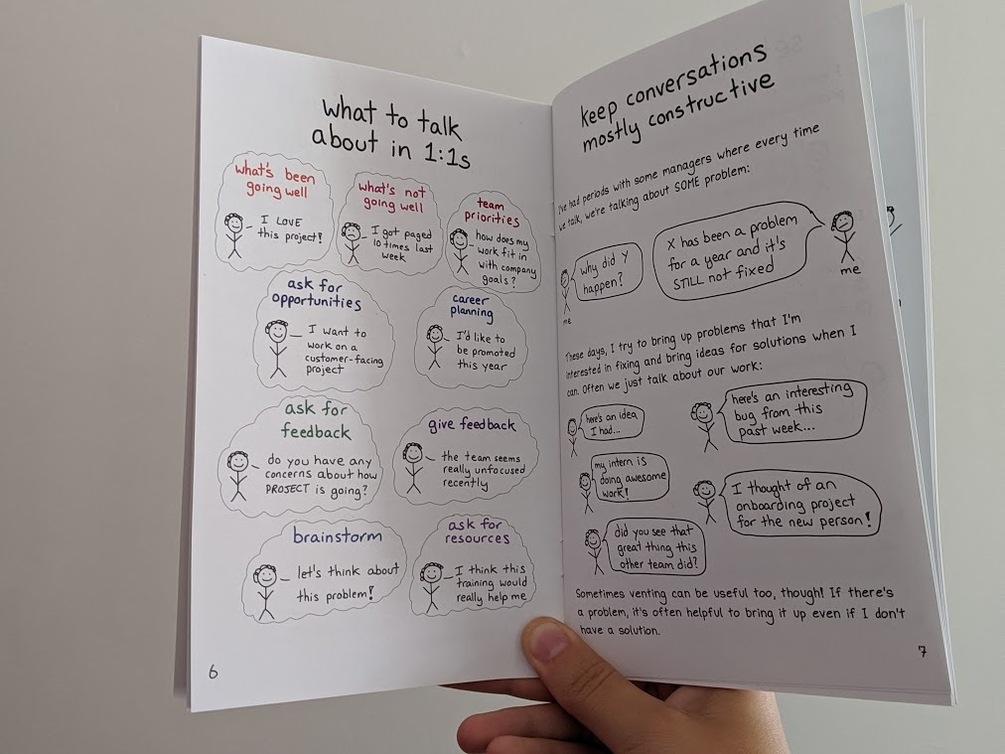 what to talk
about in 1:1s
what's been
going well
I LOVE
this project!
what's not
going well
I got paged
10 times last
week
team
priorities
how does my
work fit in
with company
goals?
ask for
opportunities
I want to
work on a
customer-facing
project
career
planning
I'd like to
be promoted
this year
ask for
feedback
do you have any
concerns about how
PROJECT is going?
give feedback
the team seems
really unfocused
recently
brainstorm
let's think about
this problem!
ask for
resources
I think this
training would
really help me
6
keep conversations
mostly constructive
I've had periods with some managers where every time
we talk, we're talking about SOME problem:
why did Y
happen?
me
X has been a problem
for a year and it's
STILL not fixed
me
These days, I try to bring up problems that I'm
interested in fixing and bring ideas for solutions when I
can. Often we just talk about our work:
here's an idea
I had...
here's an interesting
bug from this
past week...
my intern is
doing awesome
work!
I thought of an
onboarding project
for the new person!
did you see that
great thing this
other team did?
Sometimes venting can be useful too, though! If there's
a problem, it's often helpful to bring it up even if I don't
have a solution.
7